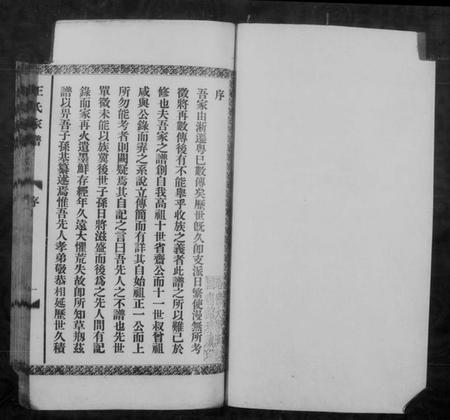 序
吾家由浙遷粤已數傳矣歷世既久即支派日繁使漫無所考
徵將再數傳後有不能舉乎收族之義者此譜之所以難已於
修也夫吾家之譜創自我高祖十世省齋公而十一世叔曾祖
咸與公錄而弆之系說立傳簡而有詳其自始祖正一公而上
所勿能考者則闕疑焉其自記之言曰吾先人之不譜也先世
單微未能以族冀後世子孫日將滋盛而後爲之先人間有記
錄而家再火遺墨鮮存經年久遠大懼荒失故即所知草剏茲
譜以畀吾子孫基纂述焉惟吾先人孝弟敬恭相延歷世久積
汪氏家譜
序
一